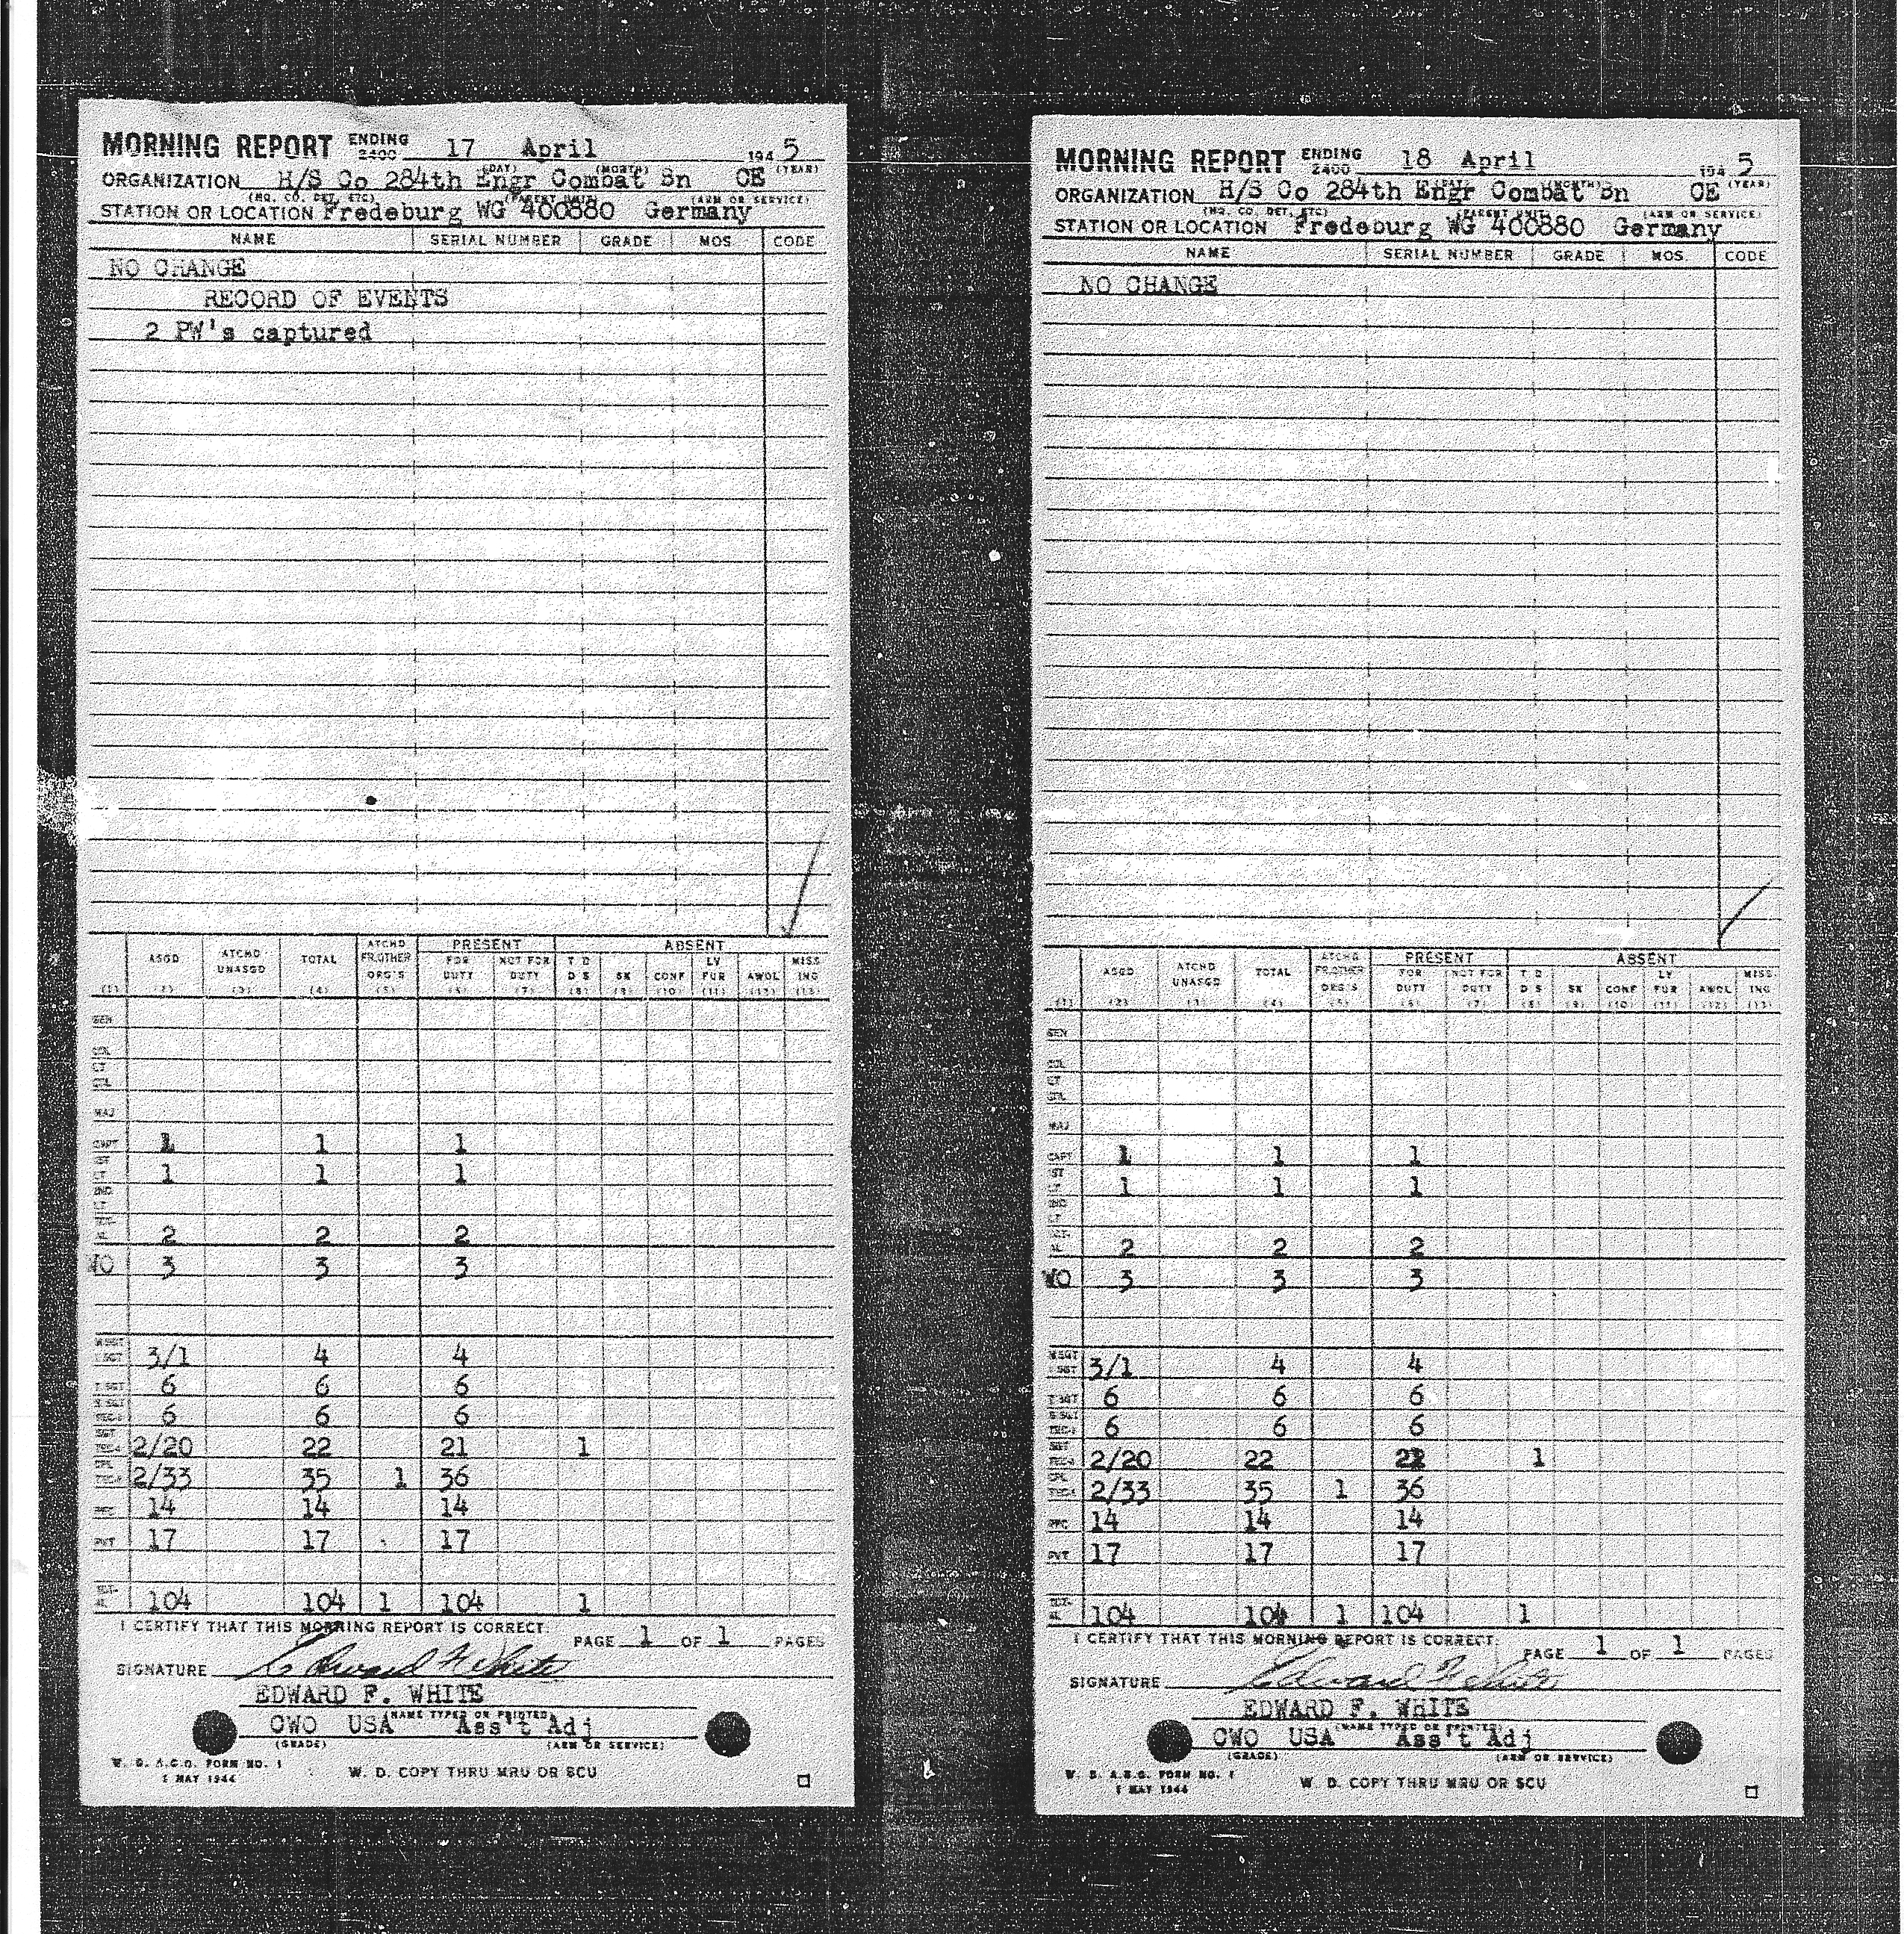 MORNING REPORT ENDING 2400 17 April 1945
(DAY) (MONTH) (YEAR)
ORGANIZATION H/S Co 284th Engr Combat Bn CE
(HQ. CO. DET. ETC) (PARENT UNIT) (ARM OR SERVICE)
STATION OR LOCATION Fredeburg WG 400880 Germany
NAME SERIAL NUMBER GRADE MOS CODE
NO CHANGE
RECORD OF EVENTS
2 PW's captured
ATCHD PRESENT ABSENT
ASGD ATCHD UNASGD TOTAL FR.OTHER ORG'S FOR DUTY NOT FOR DUTY T D D S SK CONF LV FUR AWOL MISS ING
(1) (2) (3) (4) (5) (6) (7) (8) (9) (10) (11) (12) (13)
GEN
COL
LT COL
MAJ
CAPT 1 1 1
1ST LT 1 1 1
2ND LT
2 2 2
WO 3 3 3
M SGT 1 SGT 3/1 4 4
T SGT 6 6 6
S SGT TEC-3 6 6 6
SGT TEC-4 2/20 22 21 1
CPL TEC-5 2/33 35 1 36
PFC 14 14 14
PVT 17 17 17
104 104 1 104 1
I CERTIFY THAT THIS MORNING REPORT IS CORRECT. PAGE 1 OF 1 PAGES
SIGNATURE Edward F White
EDWARD F. WHITE
(NAME TYPED OR PRINTED)
CWO USA Ass't Adj
(GRADE) (ARM OR SERVICE)
W. D. A.G.O. FORM NO. 1
1 MAY 1944
W. D. COPY THRU MRU OR SCU
MORNING REPORT ENDING 2400 18 April 1945
(DAY) (MONTH) (YEAR)
ORGANIZATION H/S Co 284th Engr Combat Bn CE
(HQ. CO. DET. ETC) (PARENT UNIT) (ARM OR SERVICE)
STATION OR LOCATION Fredeburg WG 400880 Germany
NAME SERIAL NUMBER GRADE MOS CODE
NO CHANGE
ATCHD PRESENT ABSENT
ASGD ATCHD UNASGD TOTAL FR.OTHER ORG'S FOR DUTY NOT FOR DUTY T D D S SK CONF LV FUR AWOL MISS ING
(1) (2) (3) (4) (5) (6) (7) (8) (9) (10) (11) (12) (13)
GEN
COL
LT COL
MAJ
CAPT 1 1 1
1ST LT 1 1 1
2ND LT
2 2 2
WO 3 3 3
M SGT 1 SGT 3/1 4 4
T SGT 6 6 6
S SGT TEC-3 6 6 6
SGT TEC-4 2/20 22 21 1
CPL TEC-5 2/33 35 1 36
PFC 14 14 14
PVT 17 17 17
104 104 1 104 1
I CERTIFY THAT THIS MORNING REPORT IS CORRECT. PAGE 1 OF 1 PAGES
SIGNATURE Edward F White
EDWARD F. WHITE
(NAME TYPED OR PRINTED)
CWO USA Ass't Adj
(GRADE) (ARM OR SERVICE)
W. D. A.G.O. FORM NO. 1
1 MAY 1944
W. D. COPY THRU MRU OR SCU